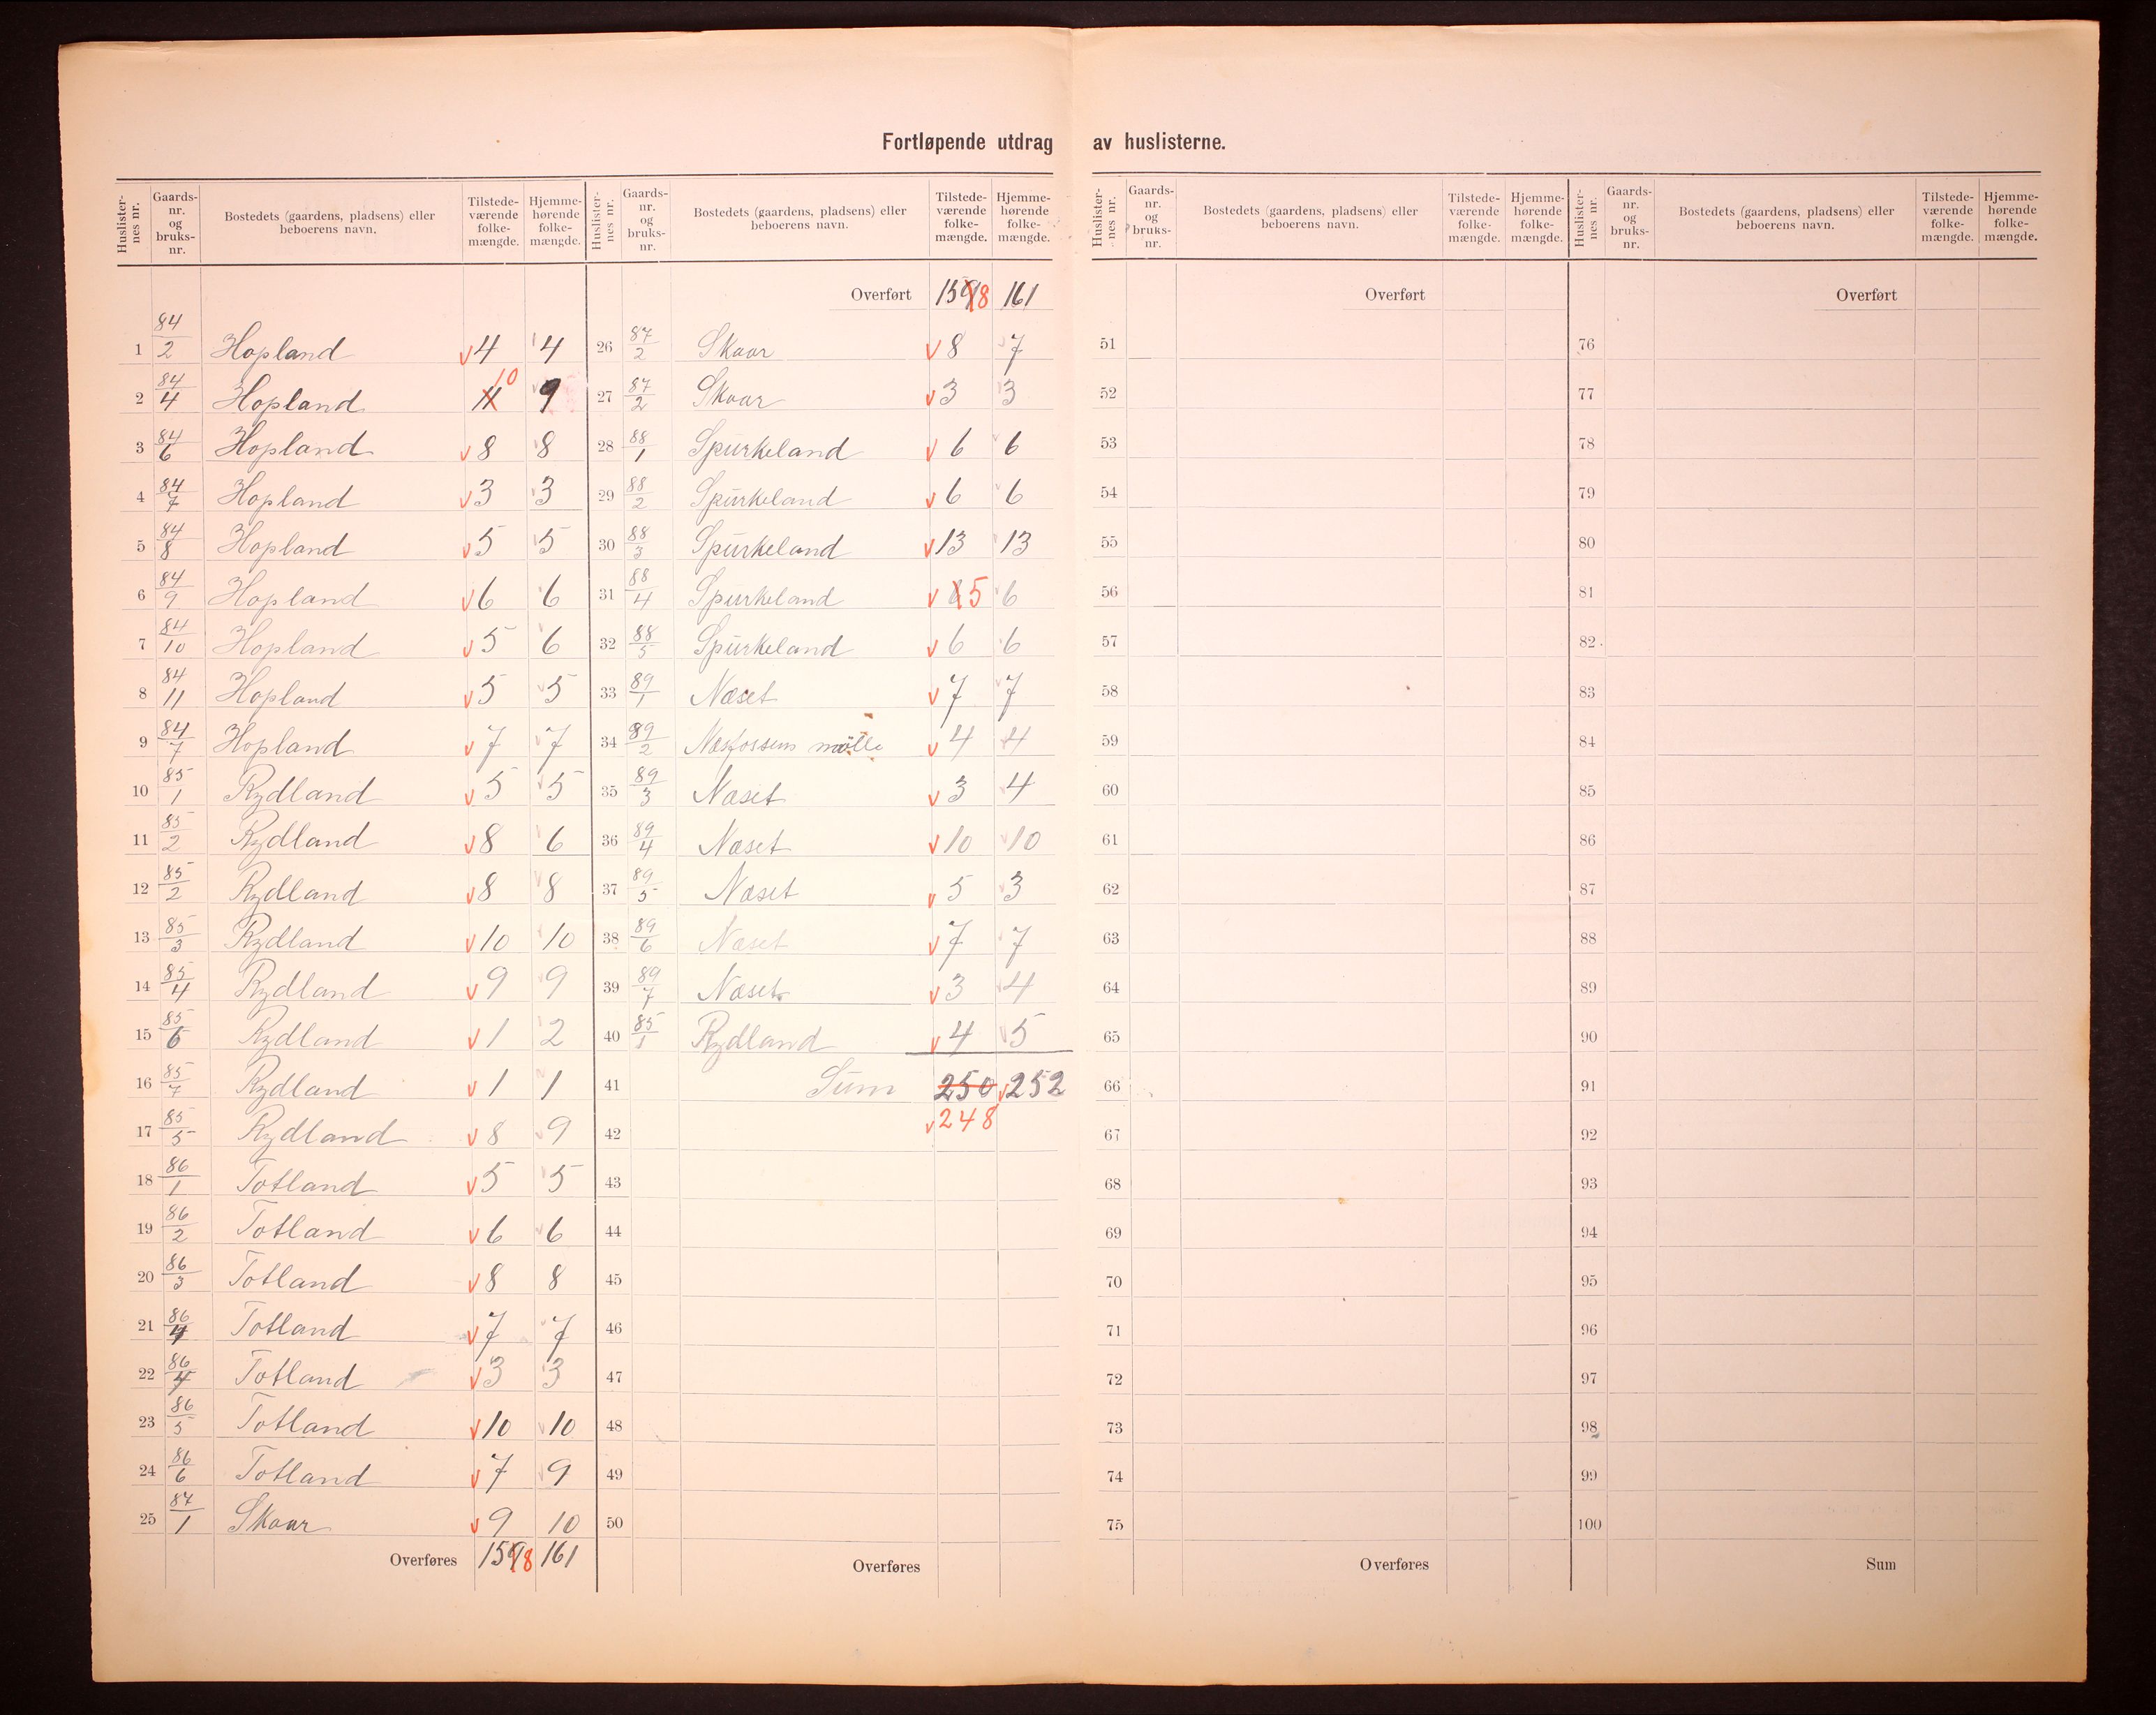 Fortløpende utdrag av huslisterne.
Huslisternes nr. Gaards-nr. og bruks-nr. Bostedets (gaardens, pladsens) eller beboerens navn. Tilstedeværende folkemængde. Hjemmehørende folkemængde.
1 84/2 Hopland 4 4
2 84/4 Hopland 11 10 9
3 84/6 Hopland 8 8
4 84/7 Hopland 3 3
5 84/8 Hopland 5 5
6 84/9 Hopland 6 6
7 84/10 Hopland 5 6
8 84/11 Hopland 5 5
9 84/7 Hopland 7 7
10 85/1 Rydland 5 5
11 85/2 Rydland 8 6
12 85/2 Rydland 8 8
13 85/3 Rydland 10 10
14 85/4 Rydland 9 9
15 85/6 Rydland 1 2
16 85/7 Rydland 1 1
17 85/5 Rydland 8 9
18 86/1 Totland 5 5
19 86/2 Totland 6 6
20 86/3 Totland 8 8
21 86/4 Totland 7 7
22 86/4 Totland 3 3
23 86/5 Totland 10 10
24 86/6 Totland 7 9
25 87/1 Skaar 9 10
Overføres 159 8 161
Huslisternes nr. Gaards-nr. og bruks-nr. Bostedets (gaardens, pladsens) eller beboerens navn. Tilstedeværende folkemængde. Hjemmehørende folkemængde.
Overført 159 8 161
26 87/2 Skaar 8 7
27 87/2 Skaar 3 3
28 88/1 Spurkeland 6 6
29 88/2 Spurkeland 6 6
30 88/3 Spurkeland 13 13
31 88/4 Spurkeland 6 5 6
32 88/5 Spurkeland 6 6
33 89/1 Næset 7 7
34 89/2 Næsfossens mölle 4 4
35 89/3 Næset 3 4
36 89/4 Næset 10 10
37 89/5 Næset 5 3
38 89/6 Næset 7 7
39 89/7 Næset 3 4
40 85/1 Rydland 4 5
41 Sum 250 252
42 248
43
44
45
46
47
48
49
50
Overføres
Huslisternes nr. Gaards-nr. og bruks-nr. Bostedets (gaardens, pladsens) eller beboerens navn. Tilstedeværende folkemængde. Hjemmehørende folkemængde.
Overført
51
52
53
54
55
56
57
58
59
60
61
62
63
64
65
66
67
68
69
70
71
72
73
74
75
Overføres
Huslisternes nr. Gaards-nr. og bruks-nr. Bostedets (gaardens, pladsens) eller beboerens navn. Tilstedeværende folkemængde. Hjemmehørende folkemængde.
Overført
76
77
78
79
80
81
82
83
84
85
86
87
88
89
90
91
92
93
94
95
96
97
98
99
100
Sum